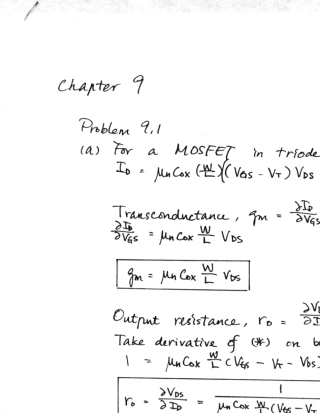 Chapter 9
Problem 9.1
(a) For a MOSFET in triode
I_D = μnCox (W/L)(V_GS - V_T) V_DS
Transconductance, gm = ∂I_D/∂V_GS
∂I_D/∂V_GS = μnCox W/L V_DS
gm = μnCox W/L V_DS
Output resistance, r_o =
Take derivative of (*) on
1 = μnCox W/L (V_GS - V_T - V_DS
r_o = ∂V_DS/∂I_D = 1/μnCox W/L (V_GS - V_T -